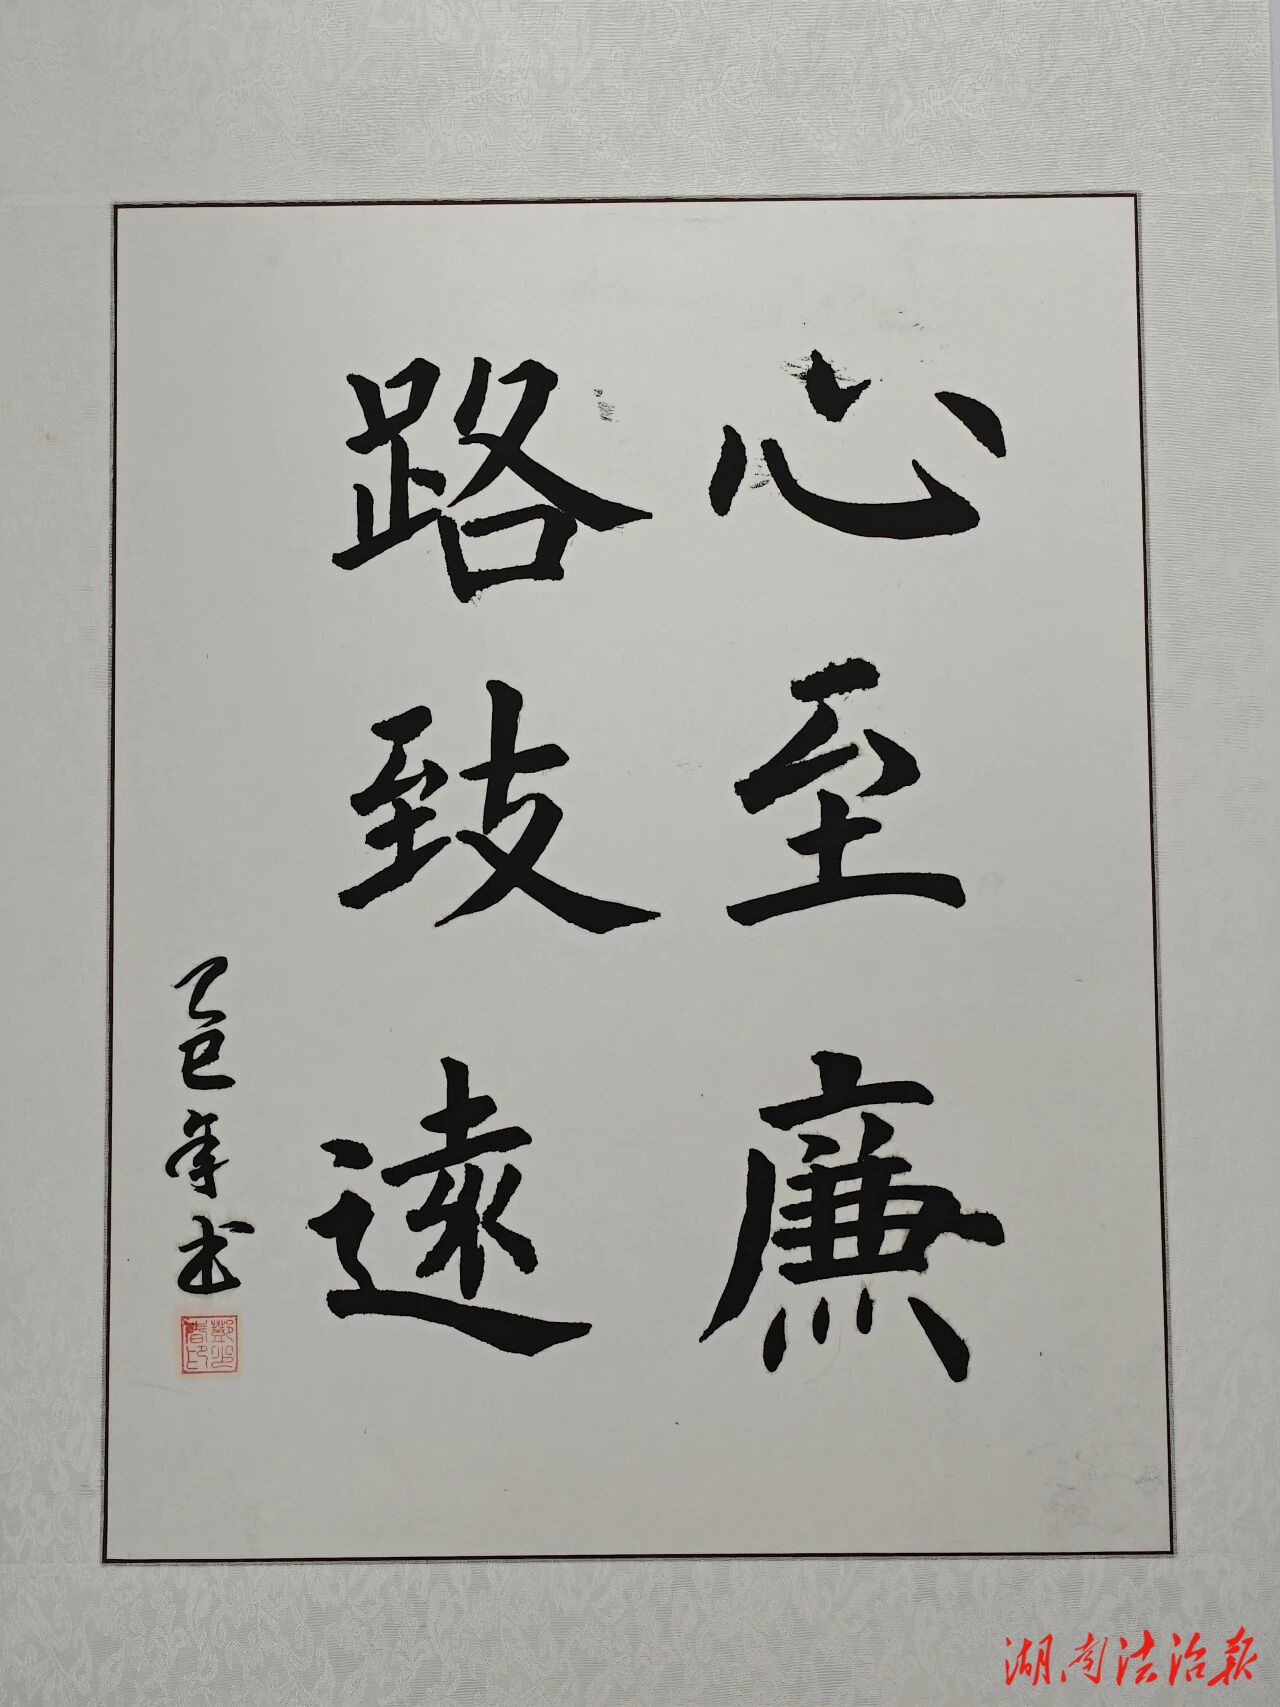 心至廉
路致遠
乙巳年书
湖南法治报